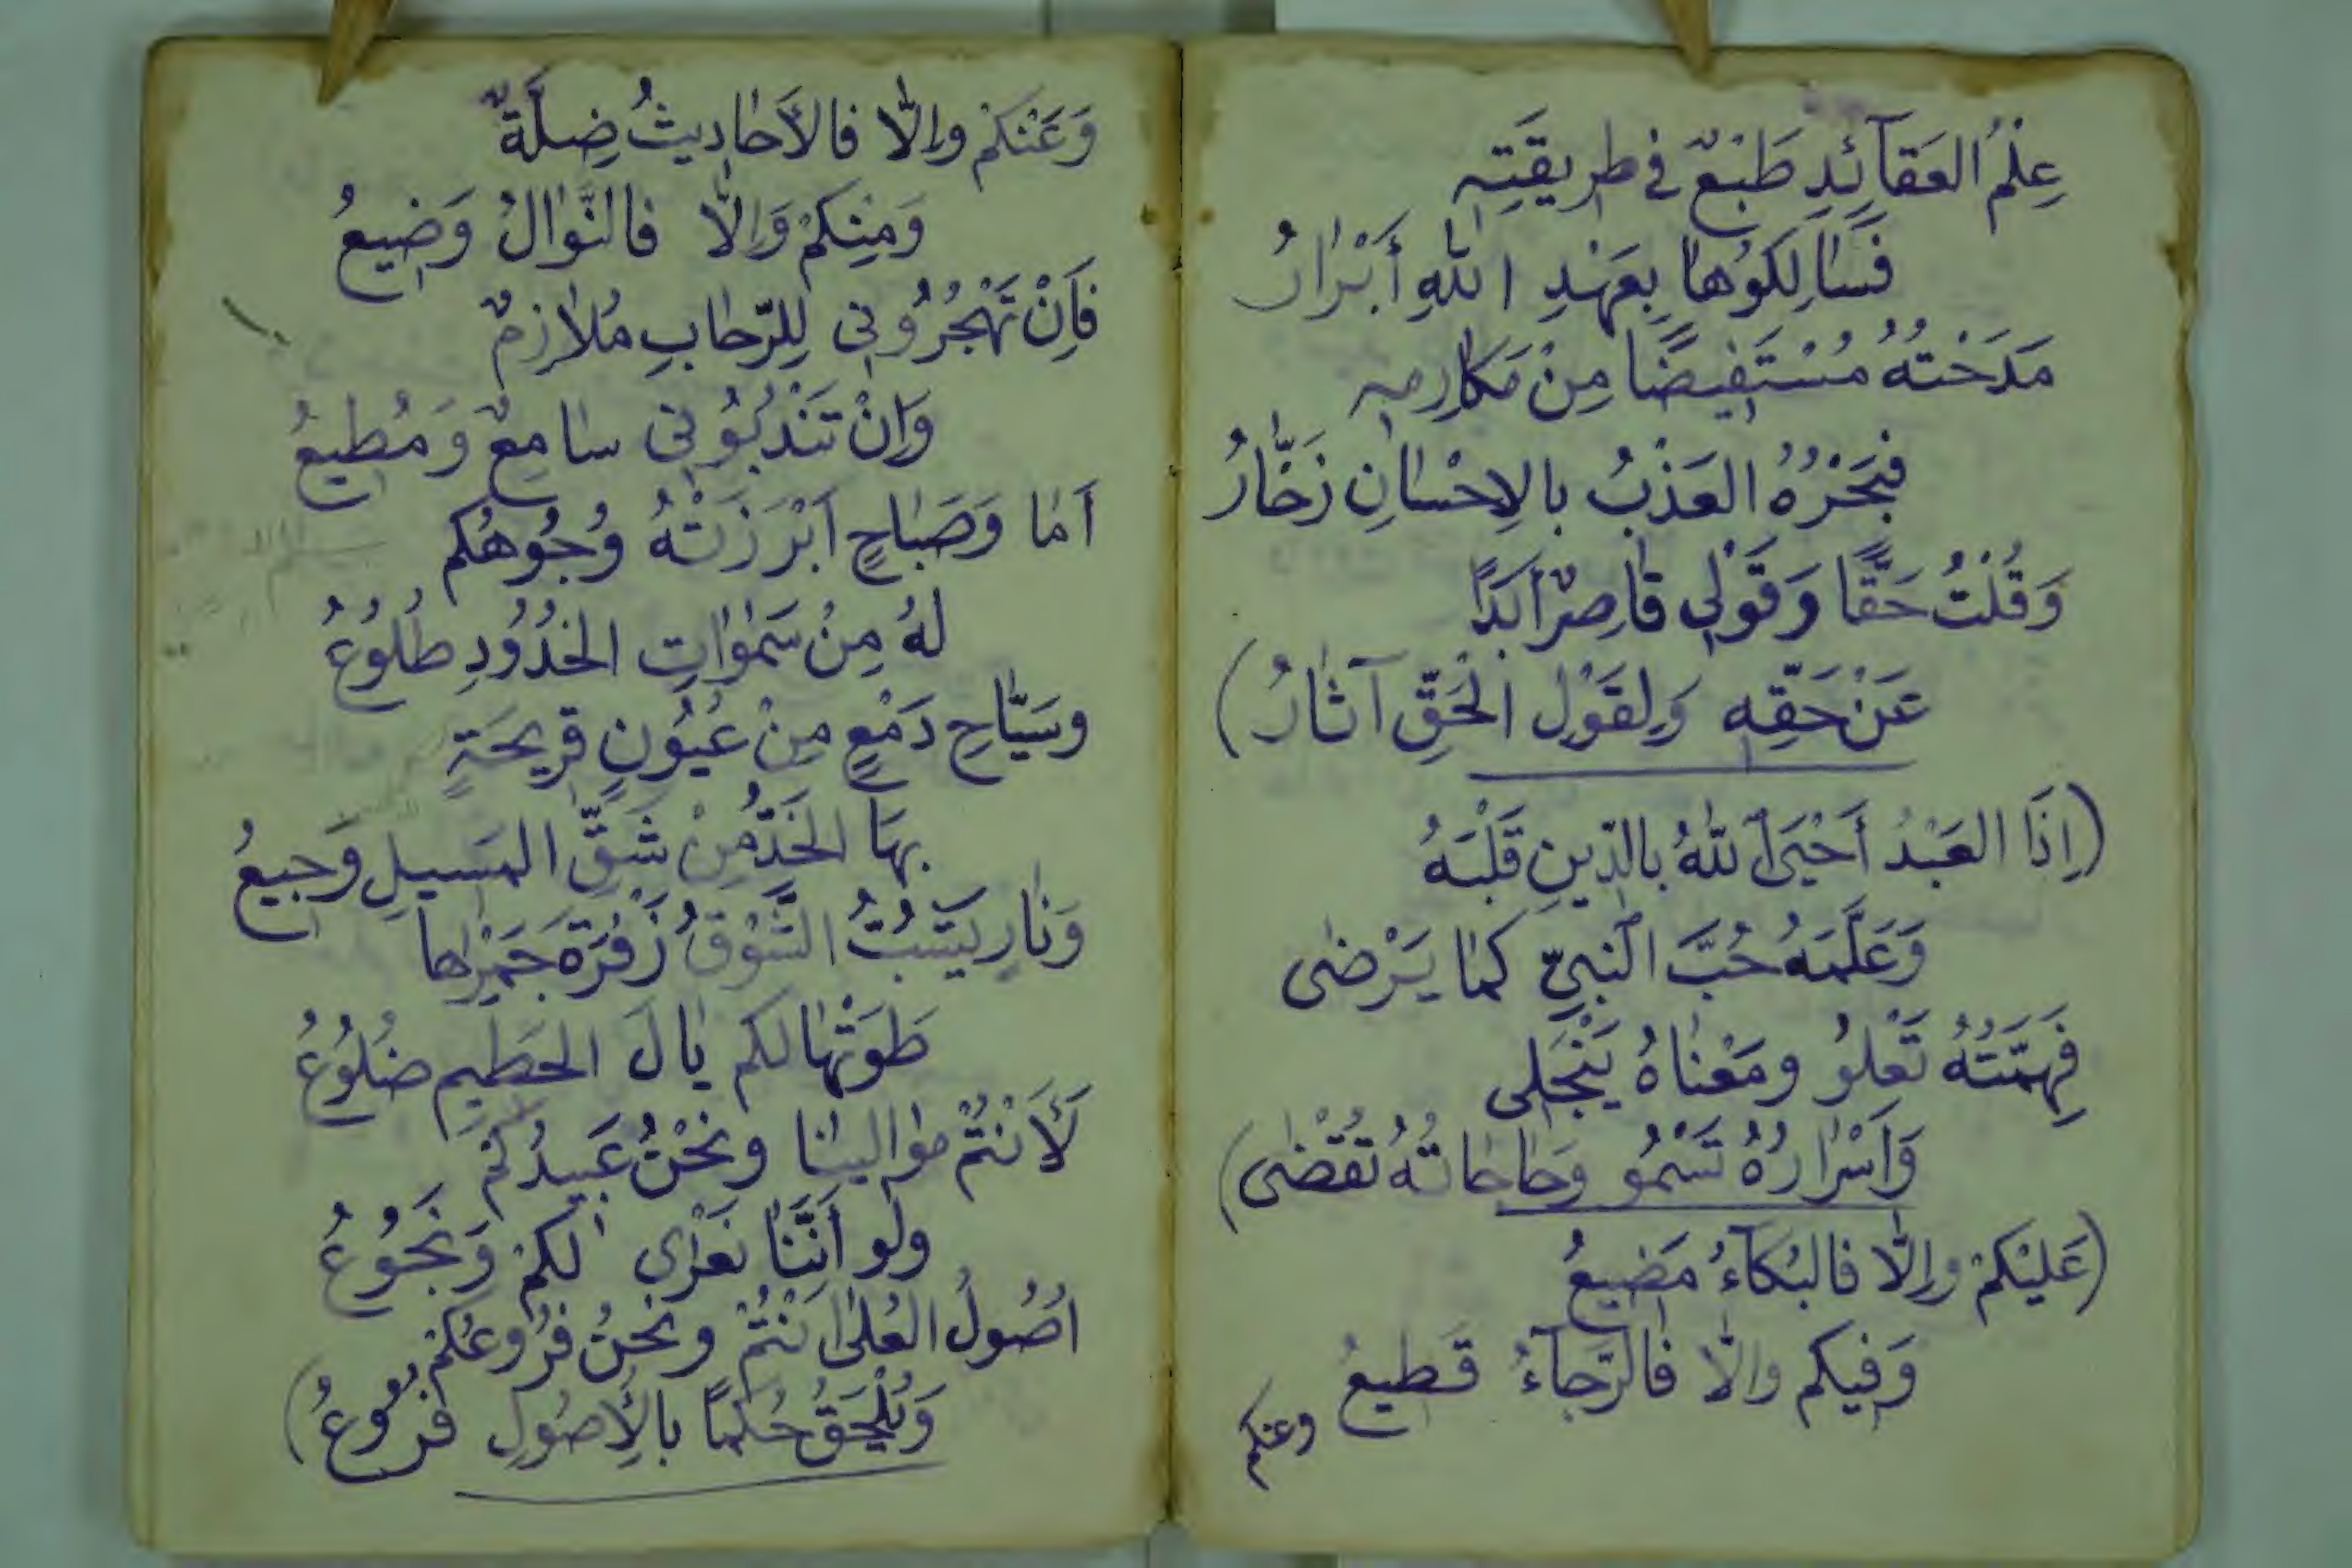 عِلْمُ العَقآئِدِ طَبْعٌ في طريقَتِهِ
فَسٰالِكوُهٰا بِعَهْدِ اللّٰهِ أَبْرٰارُ
مَدَحْتُهُ مُسْتَفيضًا مِنْ مَكارِمِهِ
فبَحْرُهُ العَذْبُ بالاِحْسٰانِ زَخّٰارُ
وَقُلْتُ حَقًّا وَقَوْلي قٰاصِرٌ أَبَدًا
عَنْ حَقِّهِ وَلِقَوْلِ الْحَقِّ آثٰارُ)
(إذَا العَبْدُ أَحْيَى اللّٰهُ بالدّينِ قَلْبَهُ
وَعَلَّمَهُ حُبَّ النَّبيِّ كمٰا يَرْضىٰ
فَهِمَّتُهُ تَعْلوُ ومَعْنٰاهُ يَنْجَلى
وَاَسْرٰارُهُ تَسْمُو وحٰاجٰاتُهُ تُقْضىٰ)
(عَليْكمْ وإلّا فالبُكآءُ مَضيعُ
وَفيكم والّا فٰالرّجآءُ قَطيعُ
وعنكم
وَعَنْكمْ وإلّا فالأَحٰاديثُ ضِلَّةٌ
وَمِنكمْ وَاِلّا فالنَّوٰالُ وَضيعُ
فَاِنْ تَهْجُرُوني لِلرّحٰابِ مُلازِمٌ
وَاِنْ تَنْدبُوُني سٰامِعٌ وَمُطيعُ
اَمٰا وَصَبٰاحٍ اَبْرَزَتْهُ وُجُوهُكم
لهُ مِنْ سَمٰوٰاتِ الخدُوُدِ طُلوُعُ
وسَيّٰاحِ دَمْعٍ مِنْ عُيُونٍ قريحَةٍ
بهَا الخَدُّ مِنْ شَقِّ المَسيلِ وَجيعُ
وَنٰارٍ يَشبُّ الشَّوْقُ زَفْرَةَ جَمْرِهٰا
طَوَتْهٰا لكم يٰالَ الحَطيمِ ضلُوُعُ
لَأَنْتُمْ مَوٰالينٰا ونَحْنُ عَبيدُكُمْ
ولَو أَنَّنٰا نَعْرٰى لكمْ وَنَجُوُعُ
اُصُولُ العُلىٰ اَنْتُمْ ونحنُ فرُوعكُمْ
وَيُلْحَقُ حُكمًا بالأُصُولِ فرُوُعُ)